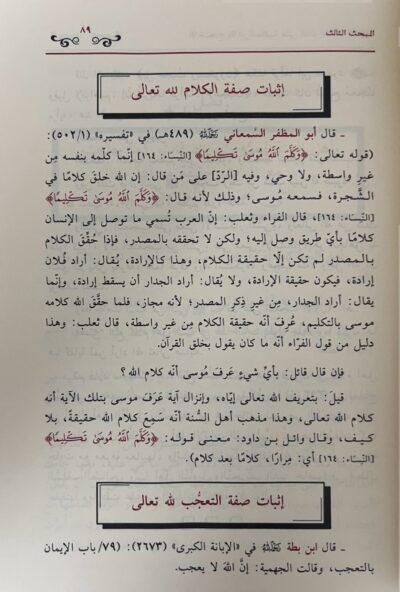 المبحث الثالث
٨٩
إثبات صفة الكلام لله تعالى
ـ قال أبو المظفر السَّمعاني رحمه الله (٤٨٩هـ) في «تفسيره» (٥٠٢/١):
(قوله تعالى: ﴿وَكَلَّمَ ٱللَّهُ مُوسَىٰ تَكْلِيمًا﴾ [النِّسَاء: ١٦٤] إنَّما كلَّمه بنفسه مِن
غيرِ واسطة، ولا وحي، وفيه [الردّ] على مَن قال: إن الله خلقَ كلامًا في
الشَّجرة، فسمعه مُوسى؛ وذلك لأنه قال: ﴿وَكَلَّمَ ٱللَّهُ مُوسَىٰ تَكْلِيمًا﴾
[النِّسَاء: ١٦٤]، قال الفراء وثعلب: إنَّ العرب تُسمي ما توصل إلى الإنسان
كلامًا بأيِّ طريق وصل إليه؛ ولكن لا تحققه بالمصدر، فإذا حُقِّقَ الكلام
بالمصدر لم تكن إلَّا حقيقة الكلام، وهذا كالإرادة، يُقال: أراد فُلان
إرادة، فيكون حقيقة الإرادة، ولا يُقال: أراد الجدار أن يسقط إرادة، وإنَّما
يقال: أراد الجدار، مِن غيرِ ذِكرِ المصدر؛ لأنه مجاز، فلما حقَّقَ الله كلامه
موسى بالتكليم، عُرِفَ أنَّه حقيقة الكلام مِن غيرِ واسطة، قال ثعلب: وهذا
دليل من قول الفرَّاء أنَّه ما كان يقول بخلق القرآن.
فإن قال قائل: بأيِّ شيءٍ عَرفَ مُوسى أنَّه كلام الله ؟
قيلَ: بتعريف الله تعالى إيَّاه، وإنزال آية عَرَفَ موسى بتلك الآية أنه
كلام الله تعالى، وهذا مذهب أهل السُّنة أنَّه سَمِعَ كلام الله حقيقةً، بلا
كيف، وقال وائل بن داود: معنى قوله: ﴿وَكَلَّمَ ٱللَّهُ مُوسَىٰ تَكْلِيمًا﴾
[النِّسَاء: ١٦٤] أي: مِرارًا، كلامًا بعد كلام).
إثبات صفة التعجُّب لله تعالى
ـ قال ابن بطة رحمه الله في «الإبانة الكبرى» (٢٦٧٣): (٧٩/باب الإيمان
بالتعجب، وقالت الجهمية: إنَّ اللهَ لا يعجب.